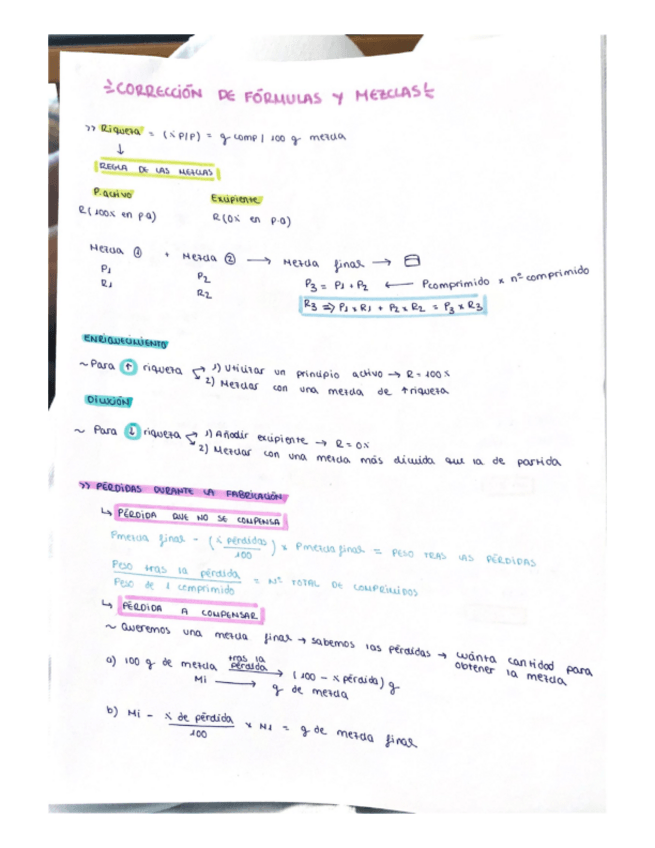 CORRECCIÓN DE FÓRMULAS Y MEZCLAS
>> Riqueza = (% P/P) = g comp / 100 g mezcla
↓
REGLA DE LAS MEZCLAS
P. activo Excipiente
R (100% en p.a) R (0% en p.a)
Mezcla ① + Mezcla ② → Mezcla final →
P1 P2 P3 = P1 + P2 ← Pcomprimido x nº comprimido
R1 R2 R3 ⇒ P1 x R1 + P2 x R2 = P3 x R3
ENRIQUECIMIENTO
~ Para ↑ riqueza 1) Utilizar un principio activo → R = 100%
2) Mezclar con una mezcla de ↑ riqueza
DILUCIÓN
~ Para ↓ riqueza 1) Añadir excipiente → R = 0%
2) Mezclar con una mezcla más diluida que la de partida
>> PÉRDIDAS DURANTE LA FABRICACIÓN
↳ PÉRDIDA QUE NO SE COMPENSA
Pmezcla final - (% pérdidas / 100) x Pmezcla final = PESO TRAS LAS PÉRDIDAS
Peso tras la pérdida / Peso de 1 comprimido = Nº TOTAL DE COMPRIMIDOS
↳ PÉRDIDA A COMPENSAR
~ Queremos una mezcla final → sabemos las pérdidas → cuánta cantidad para
obtener la mezcla
a) 100 g de mezcla tras la pérdida → (100 - % pérdida) g
Mi → g de mezcla
b) Mi - % de pérdida / 100 x Mi = g de mezcla final